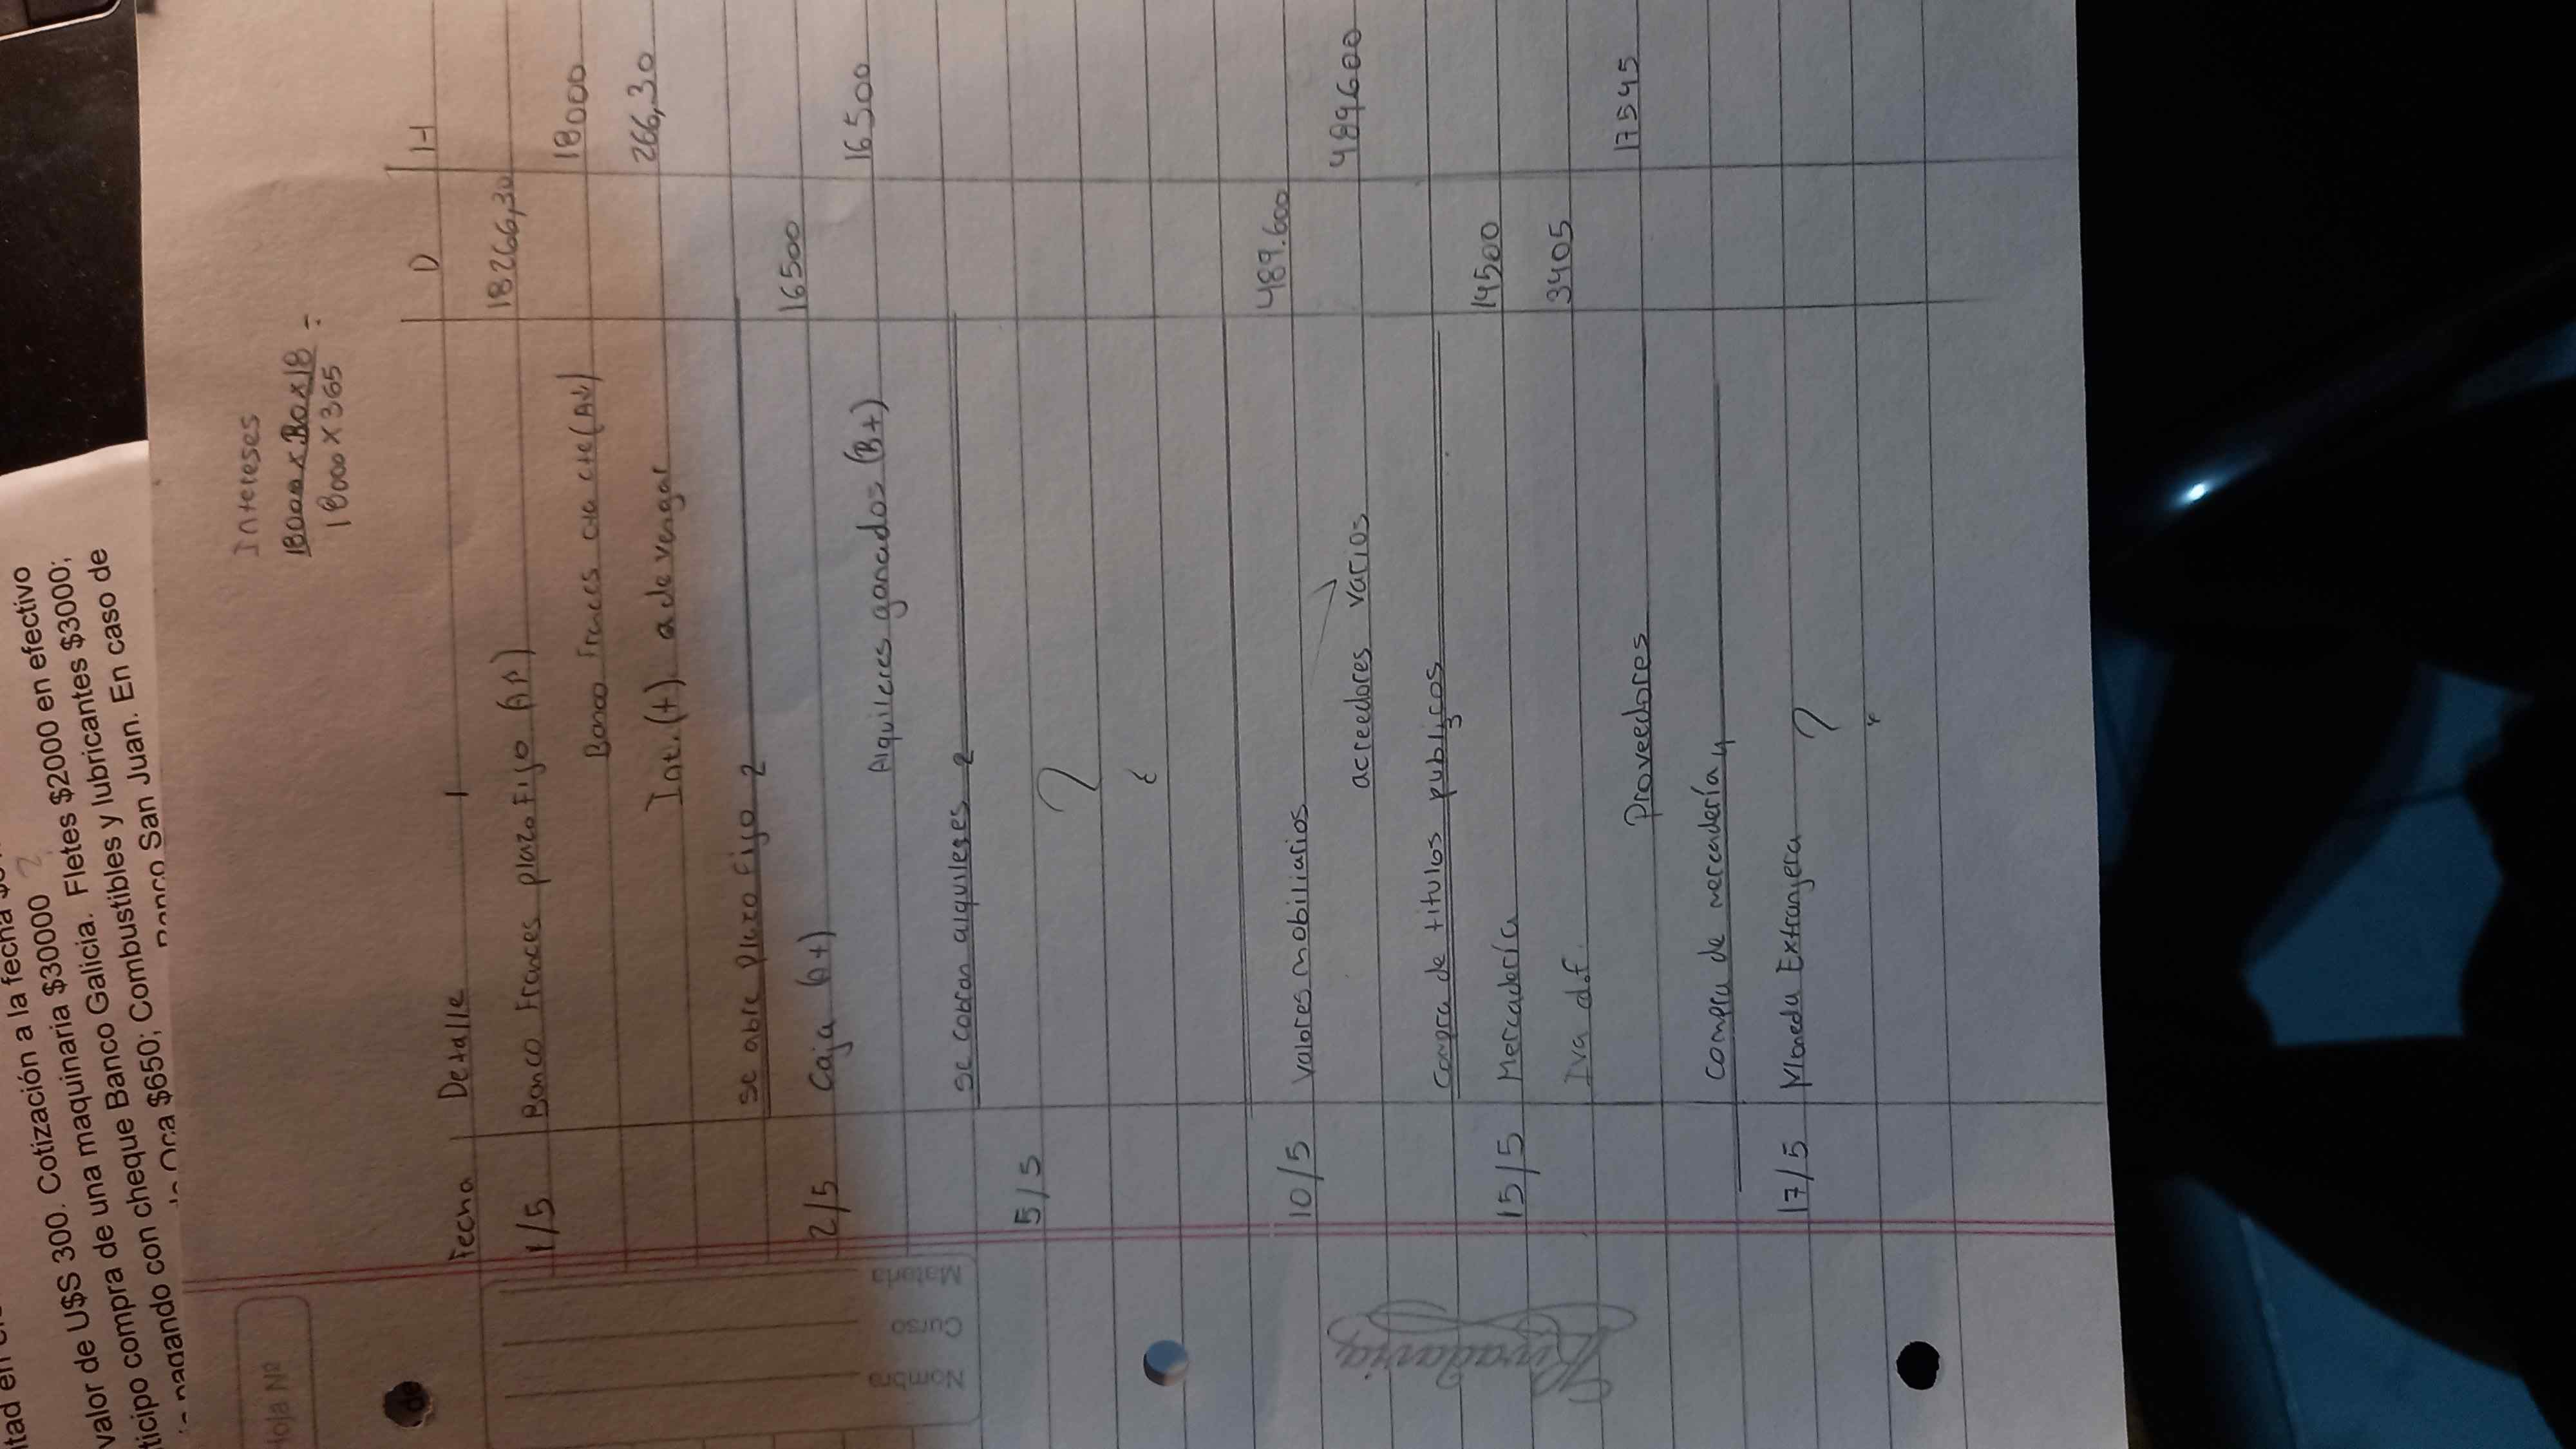 valor de U$S 300. Cotización a la fecha
ticipo compra de una maquinaria $30000 ?
pagando con cheque Banco Galicia. Fletes $2000 en efectivo
$650; Combustibles y lubricantes $3000;
San Juan. En caso de
Hoja Nº
de
Nombre
Curso
Materia
Rivadavia
Intereses
18000 x 30 x 18
18000 x 365
=
Fecha Detalle D H
1
1/5 Banco Frances plazo Fijo (AP) 18266,30
Banco Frances cta cte (A↓) 18000
Int. (+) a devengar 266,30
se abre plazo Fijo 2
2/5 Caja (A+) 16500
Alquileres ganados (R+) 16500
se cobran alquileres 2
5/5 ?
10/5 Valores mobiliarios 489.600
acreedores varios 489600
Compra de titulos publicos
3
15/5 Mercadería 14500
Iva d.f. 3405
Proveedores 17545
compra de mercadería 4
17/5 Moneda Extranjera ?